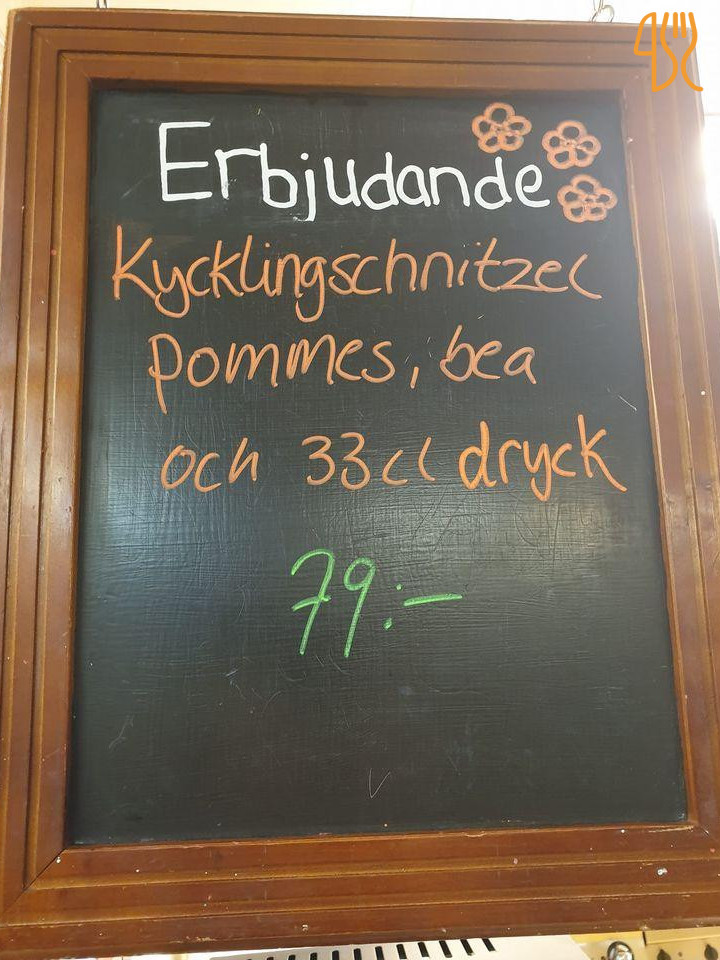 Erbjudande
Kycklingschnitzel
pommes, bea
och 33cl dryck
79:-